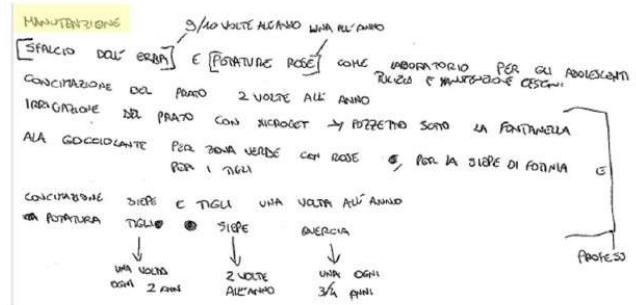 MANUTENZIONE
9/10 VOLTE ALL'ANNO UNA ALL'ANNO
[SFALCIO DELL' ERBA] E [POTATURE ROSE] COME LABORATORIO PER GLI ADOLESCENTI
PULIZIA E MANUTENZIONE CESTINI
CONCIMAZIONE DEL PRATO 2 VOLTE ALL' ANNO
IRRIGAZIONE DEL PRATO CON MICROGET → POZZETTO SOTTO LA FONTANELLA
ALA GOCCIOLANTE PER ZONA VERDE CON ROSE E, PER LA SIEPE DI FOTINIA E
PER I TIGLI
CONCIMAZIONE SIEPE E TIGLI UNA VOLTA ALL' ANNO
POTATURA TIGLI SIEPE QUERCIA
UNA VOLTA OGNI 2 ANNI
2 VOLTE ALL'ANNO
UNA OGNI 3/4 ANNI
PROFESS